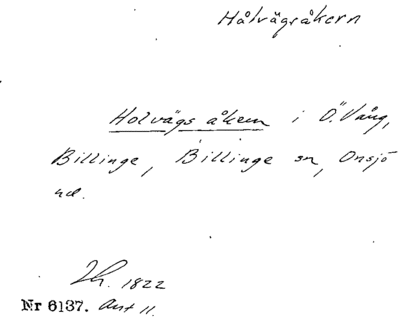 Hålvägsåkern
Holvägs åkern i Ö. Vång,
Billinge, Billinge sn, Onsjö
hd.
1822
Nr 6137. Akt 11.